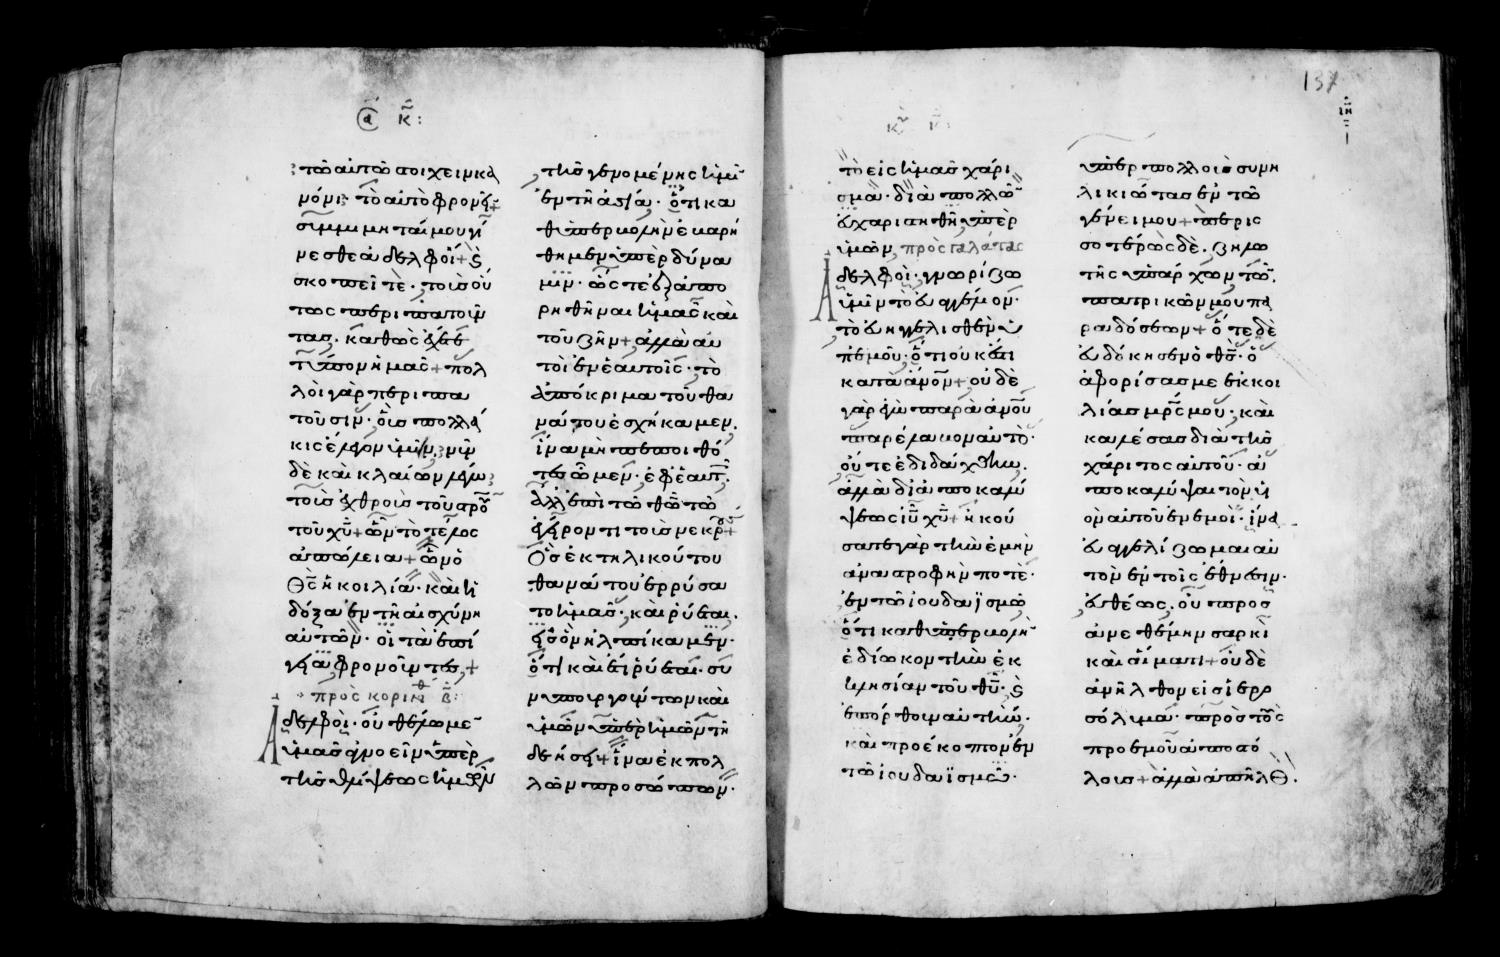 ᾱ κ̅:
τῶ αὐτῶ στοιχεῖν κα
νόνι· τὸ αὐτὸ φρονεῖν +
συμμιμηταί μου γί
νεσθε ἀδελφοί + καὶ
σκοπεῖτε· τοὺς οὕ
τως περιπατοῦν
τας· καθὼς ἔχετε
τύπον ἡμᾶς + πολ
λοὶ γὰρ περιπα
τοῦσιν· οὓς πολλά
κις ἔλεγον ὑμῖν, νῦν
δὲ καὶ κλαίων λέγω
τοὺς ἐχθροὺς τοῦ στρου
τοῦ χυ + ὧν τὸ τέλος
ἀπώλεια + ὧν ὁ
θς ἡ κοιλία· καὶ ἡ
δόξα ἐν τῆ αἰσχύνη
αὐτῶν· οἱ τὰ ἐπί
γεια φρονοῦντες +
πρὸς κορινθ β:
Ἀδελφοὶ· οὐ θέλομεν
ὑμᾶς ἀγνοεῖν ὑπὲρ
τῆς θλίψεως ἡμῶν
τῆς γενομένης ἡμῖν
ἐν τῆ ἀσία· ὅτι κα
θ' ὑπερβολὴν ἐβαρή
θημεν ὑπὲρ δύνα
μιν· ὥστε ἐξαπο
ρηθῆναι ἡμᾶς καὶ
τοῦ ζῆν + ἀλλὰ αὐ
τοὶ ἐν ἑαυτοῖς· τὸ
ἀπόκριμα τοῦ θα
νάτου ἐσχήκαμεν,
ἵνα μὴ πεποιθό
τες ὦμεν· ἐφ' ἑαυτοῖς·
ἀλλ' ἐπὶ τῶ θω τῶ
ἐγείροντι τοὺς νεκρούς +
Ὃς ἐκ τηλικούτου
θανάτου ἐρρύσα
το ἡμᾶς· καὶ ῥύεται.
εἰς ὃν ἠλπίκαμεν·
ὅτι καὶ ἔτι ῥύσεται· συ
νυπουργούντων καὶ
ὑμῶν ὑπὲρ ἡμῶν τῆ
δεήσει + ἵνα ἐκ πολ
λῶν προσώπων·
137
τὸ εἰς ἡμᾶς χάρι
σμα· διὰ πολλῶν
εὐχαριστηθῆ ὑπὲρ
ὑμῶν, πρὸς γαλάτας
Ἀδελφοὶ· γνωρίζω
ὑμῖν τὸ εὐαγγέλιον·
τὸ εὐηγγελισθὲν ὑ
π' ἐμοῦ· ὅτι οὐκ ἔστι
κατὰ ἄνον + οὐδὲ
γὰρ ἐγὼ παρὰ ἀνου
παρέλαβον αὐτὸ·
οὔτε ἐδιδάχθην.
ἀλλὰ δι' ἀποκαλύ
ψεως ιυ χυ + ἠκού
σατε γὰρ τὴν ἐμὴν
ἀναστροφὴν ποτὲ·
ἐν τῶ ἰουδαϊσμῶ
ὅτι καθ' ὑπερβολὴν
ἐδίωκον τὴν ἐκ
κλησίαν τοῦ θυ· καὶ
ἐπόρθουν αὐτήν·
καὶ προέκοπτον ἐν
τῶ ἰουδαϊσμῶ·
ὑπὲρ πολλοὺς συνη
λικιώτας ἐν τῶ
γένει μου + περισ
σοτέρως δὲ, ζηλω
τὴς ὑπάρχων τῶν
πατρικῶν μου πα
ραδόσεων + ὅτε δὲ
εὐδόκησεν ὁ θς· ὁ
ἀφορίσας με ἐκ κοι
λίας μρς μου· καὶ
καλέσας διὰ τῆς
χάριτος αὐτοῦ· ἀ
ποκαλύψαι τὸν υ
ὸν αὐτοῦ ἐν ἐμοὶ· ἵνα
εὐαγγελίζωμαι αὐ
τὸν ἐν τοῖς ἔθνεσιν·
εὐθέως, οὐ προσ
ανεθέμην σαρκὶ
καὶ αἵματι + οὐδὲ
ἀνῆλθον εἰς ἱερο
σόλυμα· πρὸς τοὺς
πρὸ ἐμοῦ ἀποστό
λους + ἀλλὰ ἀπῆλθ.